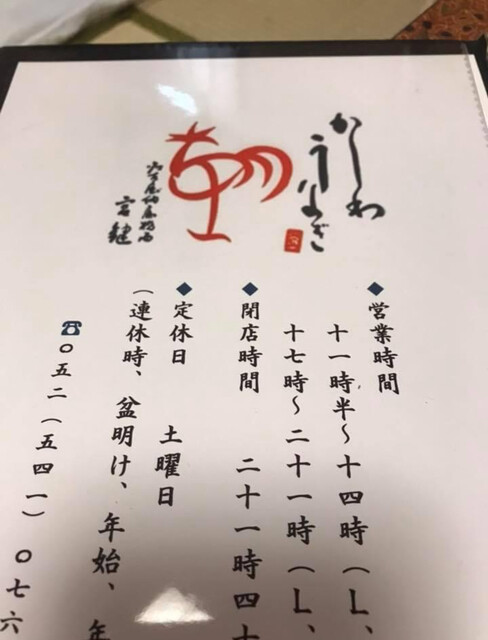 かしわ
うなぎ
宮鍵
◆営業時間
十一時半〜十四時（L、
十七時〜二十一時（L、
◆閉店時間 二十一時四十
◆定休日 土曜日
（連休時、盆明け、年始、年
☎〇五二（五四一）〇七六